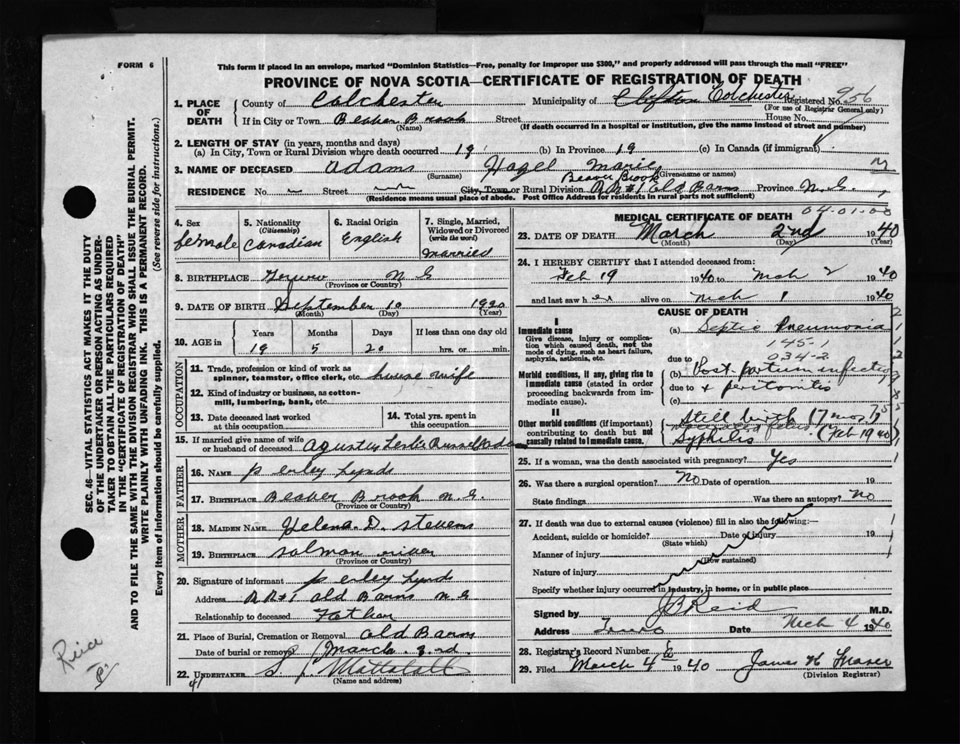 FORM 6
This form if placed in an envelope, marked "Dominion Statistics—Free, penalty for improper use $300," and properly addressed will pass through the mail "FREE"
PROVINCE OF NOVA SCOTIA—CERTIFICATE OF REGISTRATION OF DEATH
SEC. 46—VITAL STATISTICS ACT MAKES IT THE DUTY
OF THE UNDERTAKER OR PERSON ACTING AS UNDER-
TAKER TO OBTAIN ALL THE PARTICULARS REQUIRED
IN THE "CERTIFICATE OF REGISTRATION OF DEATH"
AND TO FILE THE SAME WITH THE DIVISION REGISTRAR WHO SHALL ISSUE THE BURIAL PERMIT.
WRITE PLAINLY WITH UNFADING INK. THIS IS A PERMANENT RECORD.
Every item of information should be carefully supplied. (See reverse side for instructions.)
1. PLACE OF DEATH
County of Colchester Municipality of Clifton Colchester Registered No. 956
(For use of Registrar General only)
If in City or Town Beaver Brook Street House No.
(Name) (If death occurred in a hospital or institution, give the name instead of street and number)
2. LENGTH OF STAY (in years, months and days)
(a) In City, Town or Rural Division where death occurred 19 (b) In Province 19 (c) In Canada (if immigrant)
3. NAME OF DECEASED Adams Hazel Marie
(Surname) (Given name or names)
Beaver Brook
RESIDENCE No. Street City, Town or Rural Division RR#1 Old Barns Province N.S.
(Residence means usual place of abode. Post Office Address for residents in rural parts not sufficient)
4. Sex female
5. Nationality (Citizenship) Canadian
6. Racial Origin English
7. Single, Married, Widowed or Divorced (write the word) Married
8. BIRTHPLACE N S
(Province or Country)
9. DATE OF BIRTH September 10 1920
(Month) (Day) (Year)
10. AGE in Years Months Days If less than one day old
19 5 20 hrs. or min.
OCCUPATION
11. Trade, profession or kind of work as spinner, teamster, office clerk, etc. house wife
12. Kind of industry or business, as cotton-mill, lumbering, bank, etc.
13. Date deceased last worked at this occupation
14. Total yrs. spent in this occupation
15. If married give name of wife or husband of deceased Agustus Leslie Russell Adams
FATHER
16. Name Perley Lynds
17. Birthplace Beaver Brook N.S.
(Province or Country)
MOTHER
18. Maiden Name D. Stevens
19. Birthplace Salmon river
(Province or Country)
20. Signature of informant Perley Lynds
Address RR#1 Old Barns N S
Relationship to deceased Father
21. Place of Burial, Cremation or Removal Old Barns
Date of burial or removal March 3rd
22. UNDERTAKER S. J. Mattatall
(Name and address)
41
MEDICAL CERTIFICATE OF DEATH
04-01-00
23. DATE OF DEATH March 2nd 1940
(Month) (Day) (Year)
24. I HEREBY CERTIFY that I attended deceased from:
Feb 19 1940 to Mch 2 1940
and last saw her alive on Mch 1 1940
CAUSE OF DEATH
I
Immediate cause
Give disease, injury or complication which caused death, not the mode of dying, such as heart failure, asphyxia, asthenia, etc.
(a) Septic Pneumonia
145-1
034-2
due to
Morbid conditions, if any, giving rise to immediate cause (stated in order proceeding backwards from immediate cause).
(b) Post-partum infection
due to + peritonitis
(c)
II
Other morbid conditions (if important) contributing to death but not causally related to immediate cause.
Still birth (7 mos)
Syphilis (Feb 19 40)
25. If a woman, was the death associated with pregnancy? Yes
26. Was there a surgical operation? No Date of operation 19
State findings Was there an autopsy? No
27. If death was due to external causes (violence) fill in also the following:—
Accident, suicide or homicide? Date of injury 19
(State which)
Manner of injury
(How sustained)
Nature of injury
Specify whether injury occurred in industry, in home, or in public place
Signed by J B Reid M.D.
Address Truro Date Mch 4 1940
28. Registrar's Record Number
29. Filed March 4 1940 James H Fraser
(Division Registrar)